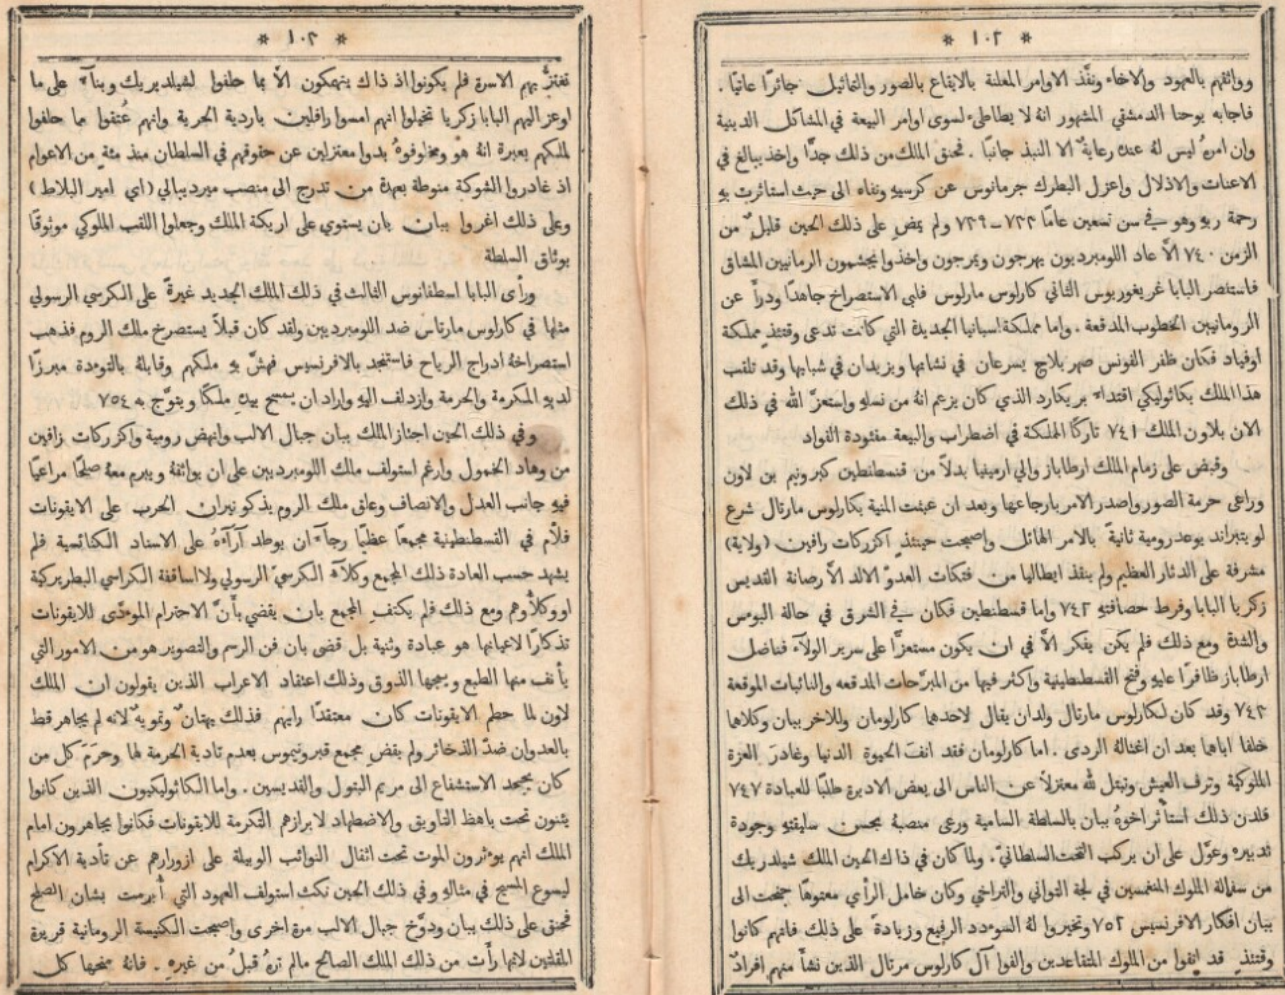 * ١٠٢ *
وواثقهم بالعهود والاخاء ونفَّذ الاوامر المعلنة بالايقاع بالصور والتماثيل جائرًا عاتيًا .
فاجابه يوحنا الدمشقي المشهور انهُ لا يطاطىء لسوى اوامر البيعة في المشاكل الدينية
وان امرهُ ليس لهُ عنده رعايةٌ الا النبذ جانبًا . فحنق الملك من ذلك جدًّا واخذ يبالغ في
الاعنات والاذلال واعتزل البطرك جرمانوس عن كرسيهِ ونفاه الى حيث استاثرت بهِ
رحمة ربهِ وهو في سن تسعين عامًا ٧٢٢ ــ ٧٢٩ ولم يمضِ على ذلك الحين قليلٌ من
الزمن ٧٤٠ الاَّ عاد اللومبرديون يهرجون ويمرجون واخذوا يجشمون الرمانيين المشاق
فاستنصر البابا غريغوريوس الثاني كارلوس مارلوس فلبى الاستصراخ جاهدًا ودرأَ عن
الرومانيين الخطوب المدقعة . واما مملكة اسبانيا الجديدة التي كانت تدعى وقتئذٍ مملكة
اوفياد فكان ظفر الفونس صهر بلاج يسرعان في نشابها ويزيدان في شبابها وقد تلقب
هذا الملك بكاثوليكي اقتداءً بريكارد الذي كان يزعم انهُ من نسلهِ واستعزَّ الله في ذلك
الان بلاون الملك ٧٤١ تاركًا المملكة في اضطراب والبيعة مفئودة الفواد
وقبض على زمام الملك ارطاباز والي ارمينيا بدلاً من قنسطنطين كبرونيم بن لاون
وراعى حرمة الصور واصدر الامر بارجاعها وبعد ان عبثت المنية بكارلوس مارتال شرع
لويتبراند يوعد رومية ثانيةً بالامر الهائل واصبحت حينئذٍ اكزركات رافين (ولاية)
مشرفة على الدثار العظيم ولم ينقذ ايطاليا من فتكات العدوّ الالد الاَّ رصانة القديس
زكريا البابا وفرط حصافتهِ ٧٤٢ واما قسطنطين فكان في الشرق في حالة البوس
والشدة ومع ذلك فلم يكن يفكر الاَّ في ان يكون مستعزًّا على سرير الولاَء فناضل
ارطاباز ظافرًا عليهِ وفتح القسطنطينية واكثر فيها من المبرّحات المدقعه والنائبات الموقعة
٧٤٣ وقد كان لكارلوس مارتال ولدان يقال لاحدهما كارلومان وللاخر ببان وكلاهما
خلفا اباها بعد ان اغتالهُ الردى . اما كارلومان فقد انفَ الحيوة الدنيا وغادرَ العزة
الملوكية وترف العيش وتبتل لله معتزلاً عن الناس الى بعض الاديرة طلبًا للعبادة ٧٤٧
فلدن ذلك استأثر اخوهُ ببان بالسلطة السامية ورعى منصبهُ بحسن سليقتهِ وجودة
تدبيره وعوّل على ان يركب التخت السلطانيّ. ولما كان في ذاك الحين الملك شيلدريك
من سفالة الملوك المنغمسين في لجة التواني والتراخي وكان خامل الرأي معتوهًا جمحت الى
ببان افكار الافرنسيس ٧٥٢ وتخيروا لهُ السودد الرفيع وزيادة على ذلك فانهم كانوا
وقتئذٍ قد انفوا من الملوك المتقاعدين والفوا آل كارلوس مرتال الذين نشأَ منهم افرادٌ
* ١٠٣ *
تعتزُّ بهم الاسرة فلم يكونوا اذ ذاك ينهمكون الاَّ بما حلفوا لشيلديريك وبناءً على ما
اوعز اليهم البابا زكريا تخيلوا انهم امسوا رافلين باردية الحرية وانهم عُتقوا مما حلفوا
لملكهم بعبرة انهُ هو ومخلوفوهُ بدوا معتزلين عن حقوقهم في السلطان منذ مئة من الاعوام
اذ غادروا الشوكة منوطة بعهدة من تدرج الى منصب ميرديبالي (اي امير البلاط)
وعلى ذلك اغروا ببان بان يستوي على اريكة الملك وجعلوا اللقب الملوكي موثوقًا
بوثاق السلطة
ورأَى البابا اسطفانوس الثالث في ذلك الملك الجديد غيرةً على الكرسي الرسولي
مثلها في كارلوس مارتاس ضد اللومبرديين ولقد كان قبلاً يستصرخ ملك الروم فذهب
استصراخهُ ادراج الرياح فاستنجد بالافرنسيس فهشَّ بهِ ملكهم وقابلهُ بالتومدة مبرزًا
لديهِ المكرمة والحرمة وازدلف اليهِ واراد ان يمسح بيده ملكًا ويتوَّج به ٧٥٤
وفي ذلك الحين اجتاز الملك ببان جبال الالب وانهض رومية واكزركات رافين
من وهاد الخمول وارغم استولف ملك اللومبرديين على ان يواثقهُ ويبرم معهُ صلحًا مراعيًا
فيهِ جانب العدل والانصاف وعاق ملك الروم يذكو نيران الحرب على الايقونات
فلاَّم في القسطنطينية مجمعًا عظيًا رجاَء ان يوطد آراَءَهُ على الاسناد الكنائسية فلم
يشهد حسب العادة ذلك المجمع وكلاَء الكرسيّ الرسولي ولا اساقفة الكراسي البطريركية
او وكلاُّوهم ومع ذلك فلم يكتفِ المجمع بان يقضي بأَنّ الاحترام الموَدَّى للايقونات
تذكارًا لاعيانها هو عبادة وثنية بل قضى بان فن الرسم والتصوير هو من الامور التي
يأنف منها الطبع ويمجها الذوق وذلك اعتقاد الاعراب الذين يقولون ان الملك
لاون لما حطم الايقونات كان معتقدًا رايهم فذلك بهتانٌ وتمويهٌ لانه لم يجاهر قط
بالعدوان ضدّ الذخائر ولم يقضِ مجمع قبرونيموس بعدم تادية الحرمة لها وحَرَمَ كل من
كان يجحد الاستشفاع الى مريم البتول والقديسين . واما الكاثوليكيون الذين كانوا
يئنون تحت باهظ التاويق والاضطهاد لابرازهم التكرمة للايقونات فكانوا يجاهرون امام
الملك انهم يوثرون الموت تحت اثقال النوائب الوبيلة على ازورارهم عن تأدية الاكرام
ليسوع المسيح في مثالهِ وفي ذلك الحين نكث استولف العهود التي أُبرمت بشان الصلح
فحنق على ذلك ببان ودوَّخ جبال الالب مرة اخرى واصبحت الكنيسة الرومانية قريرة
المقلتين لانها رأَت من ذلك الملك الصالح مالم ترهُ قبلُ من غيرهِ . فانهُ منحها كل